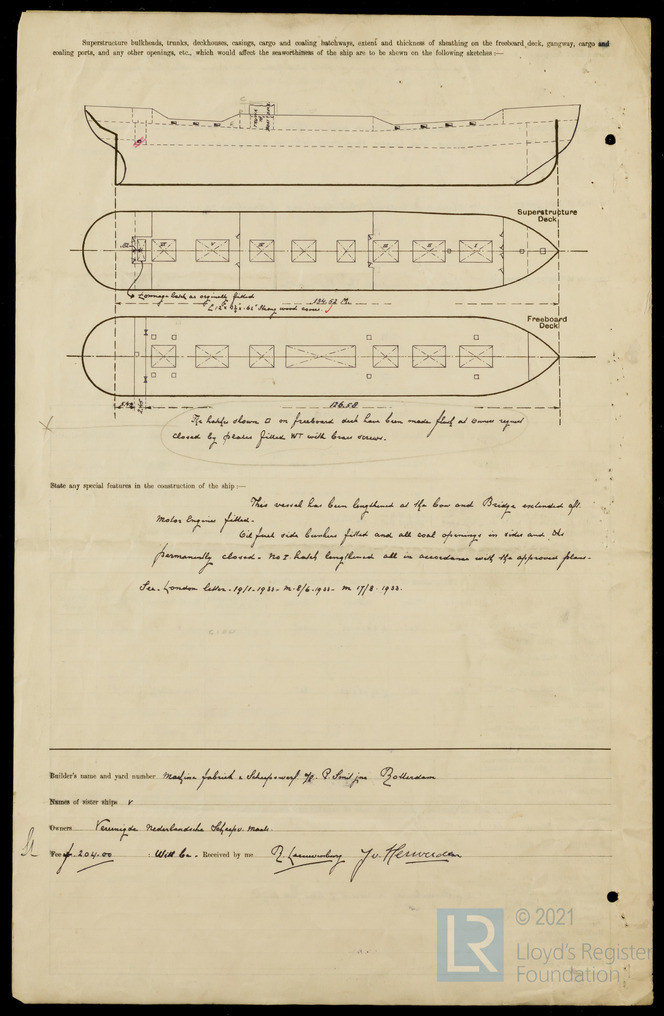 Superstructure bulkheads, trunks, deckhouses, casings, cargo and coaling hatchways, extent and thickness of sheathing on the freeboard deck, gangway, cargo and
coaling ports, and any other openings, etc., which would affect the seaworthiness of the ship are to be shown on the following sketches :—
Superstructure
Deck
Tonnage hatch as originally fitted
wood covers
134.52 M.
Freeboard
Deck
126.58
The hatches shown □ on freeboard deck have been made flush at Owners request
closed by plates fitted WT with brass screws.
State any special features in the construction of the ship :—
This vessel has been lengthened at the bow and Bridge extended aft.
Motor Engines fitted.
Oil fuel side bunkers filled and all coal openings in sides and
permanently closed - No I hatch lengthened all in accordance with the approved plans.
See London letter - 19/5-1933 - M - 8/6-1933 - M 17/8-1933.
Builder's name and yard number Machine fabriek & Scheepswerf P. Smit jnr Rotterdam
Names of sister ships
Owners Vereenigde Nederlandsche Scheepv. Maats.
Fee fr. 204.00 : Will be - Received by me
© 2021
LR
Lloyd's Register
Foundation